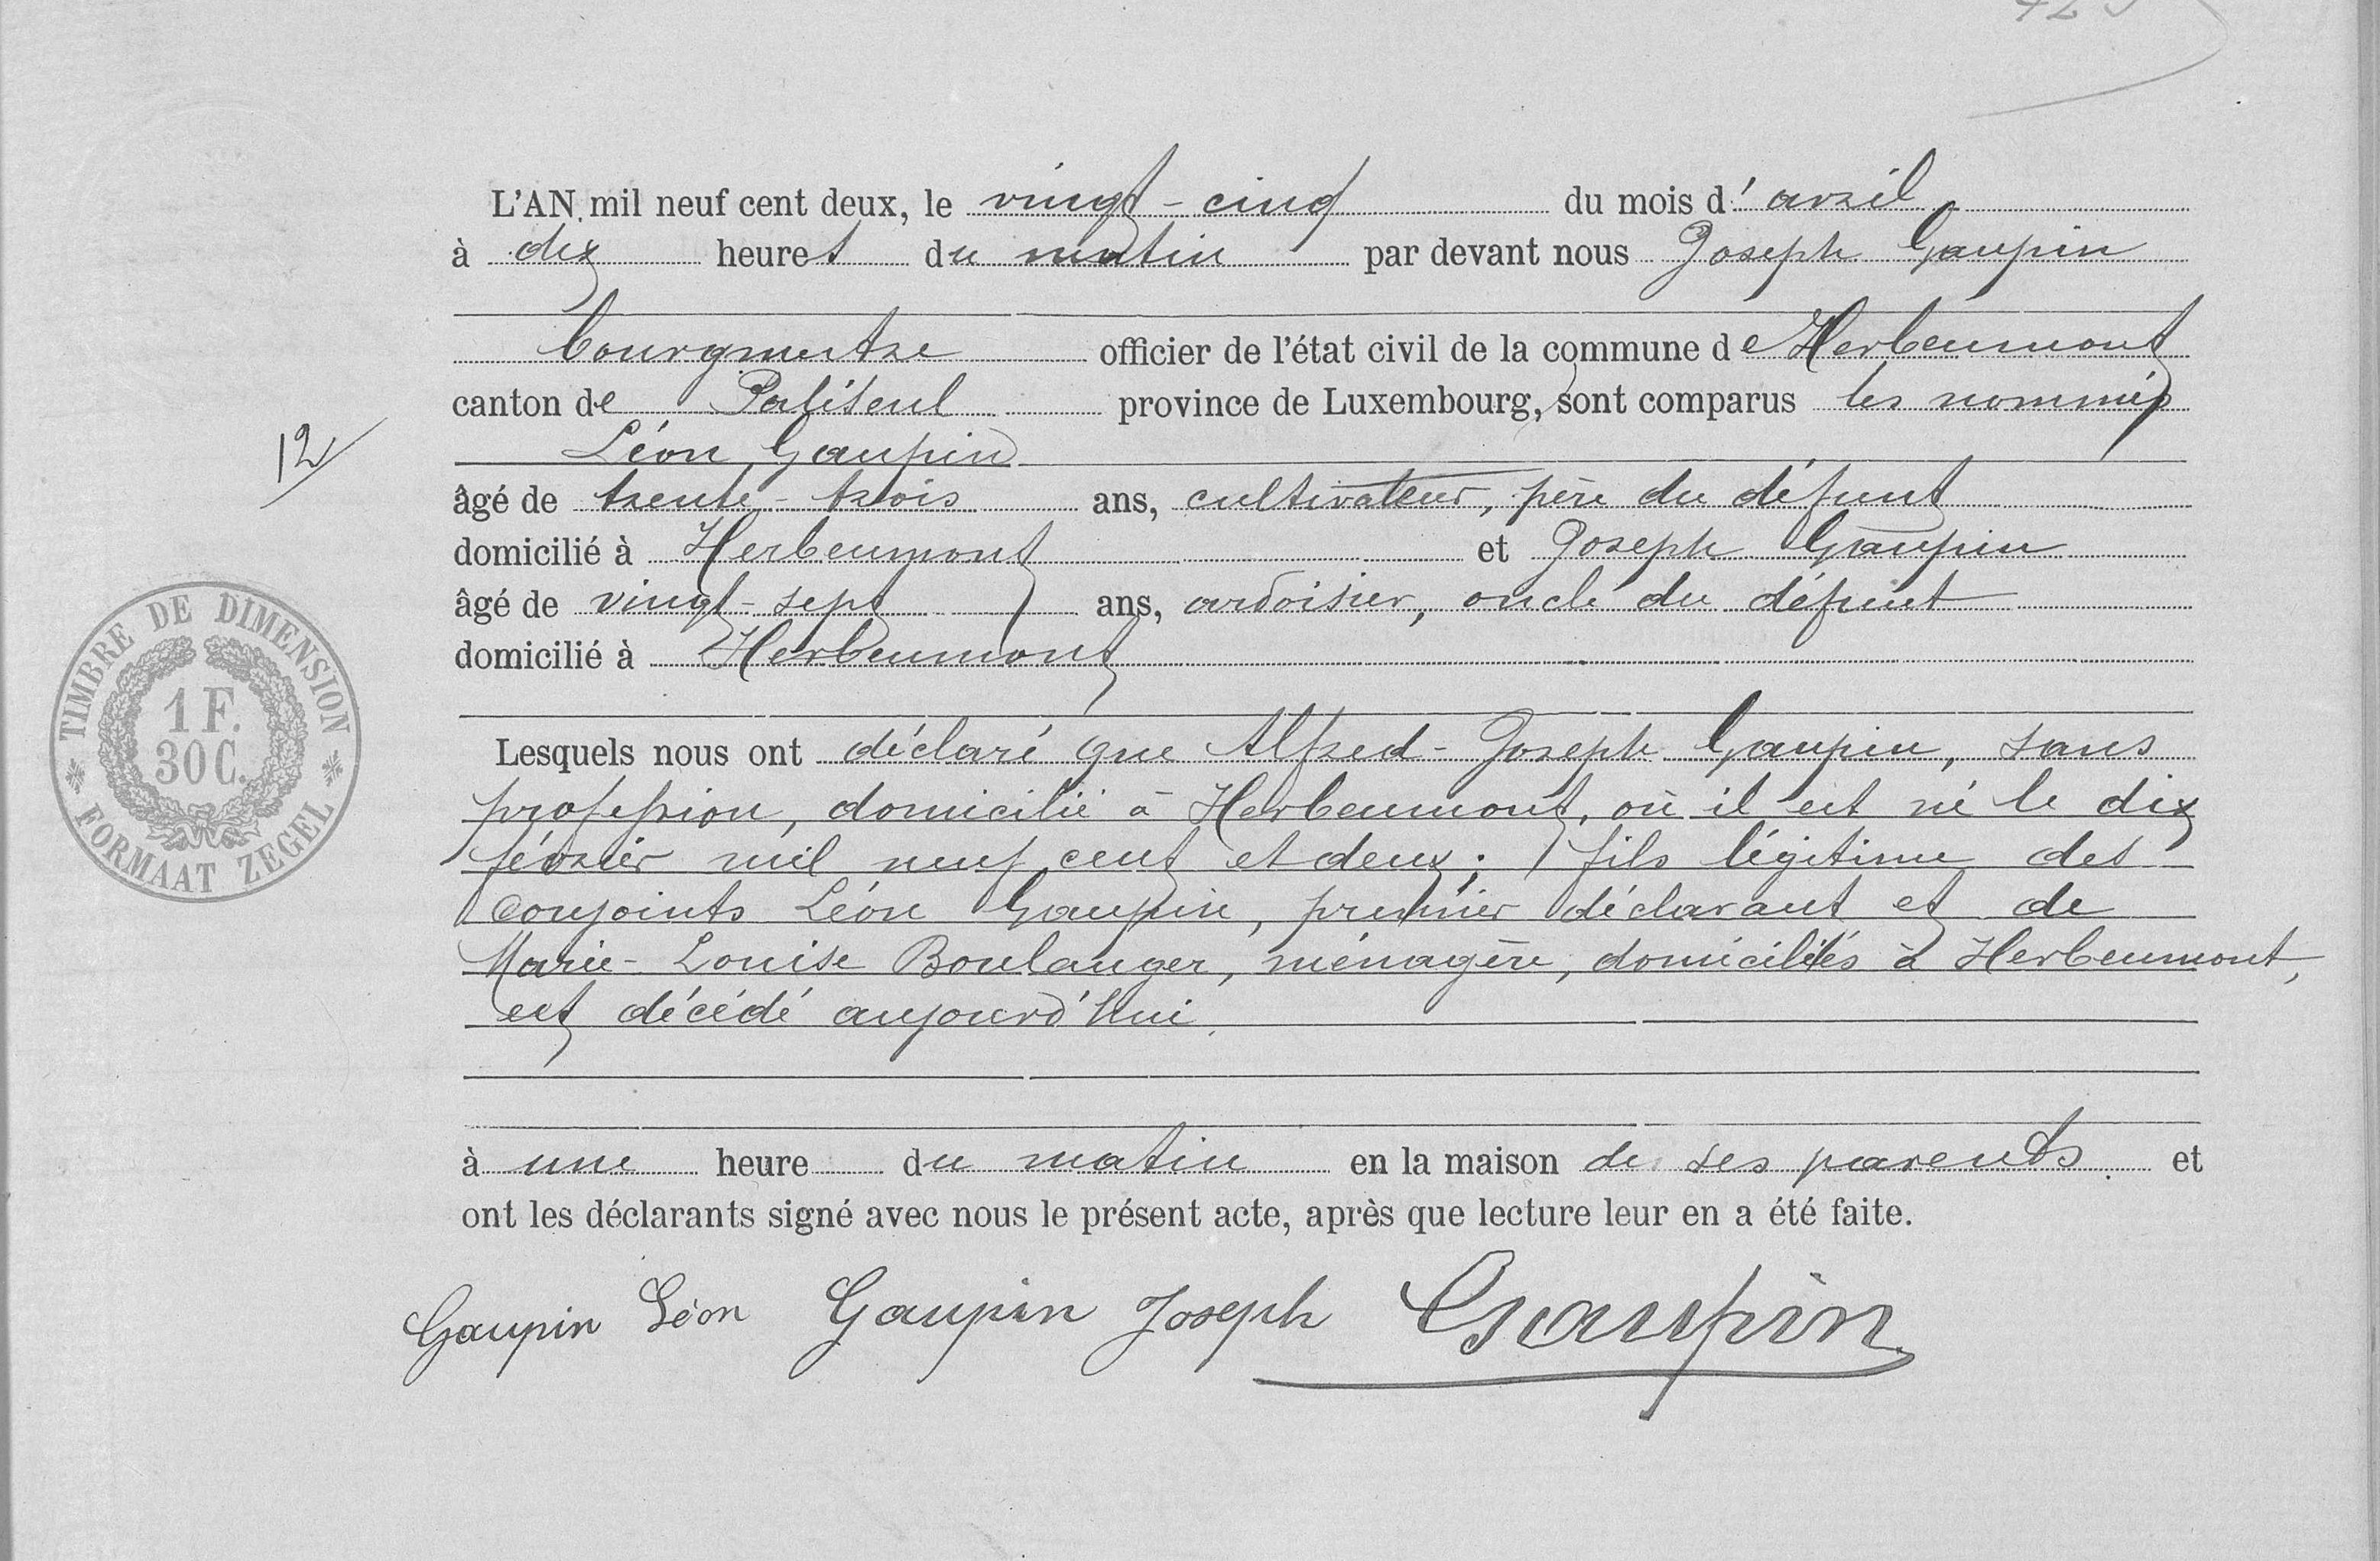 L'AN mil neuf cent deux, le vingt-cinq du mois d'avril
à dix heures du matin par devant nous Joseph Gaupin
bourgmestre officier de l'état civil de la commune de Herbeumont
canton de Paliseul province de Luxembourg, sont comparus les nommés
Léon Gaupin
12
âgé de trente-trois ans, cultivateur, père du défunt
domicilié à Herbeumont et Joseph Gaupin
âgé de vingt-sept ans, ardoisier, oncle du défunt
domicilié à Herbeumont
TIMBRE DE DIMENSION
1 F.
30 C.
FORMAAT ZEGEL
Lesquels nous ont déclaré que Alfred-Joseph Gaupin, sans
profession, domicilié à Herbeumont, où il est né le dix
février mil neuf cent et deux; fils légitime des
conjoints Léon Gaupin, premier déclarant et de
Marie-Louise Boulanger, ménagère, domiciliés à Herbeumont,
est décédé aujourd'hui
à une heure du matin en la maison de ses parents. et
ont les déclarants signé avec nous le présent acte, après que lecture leur en a été faite.
Gaupin Léon Gaupin Joseph Gaupin